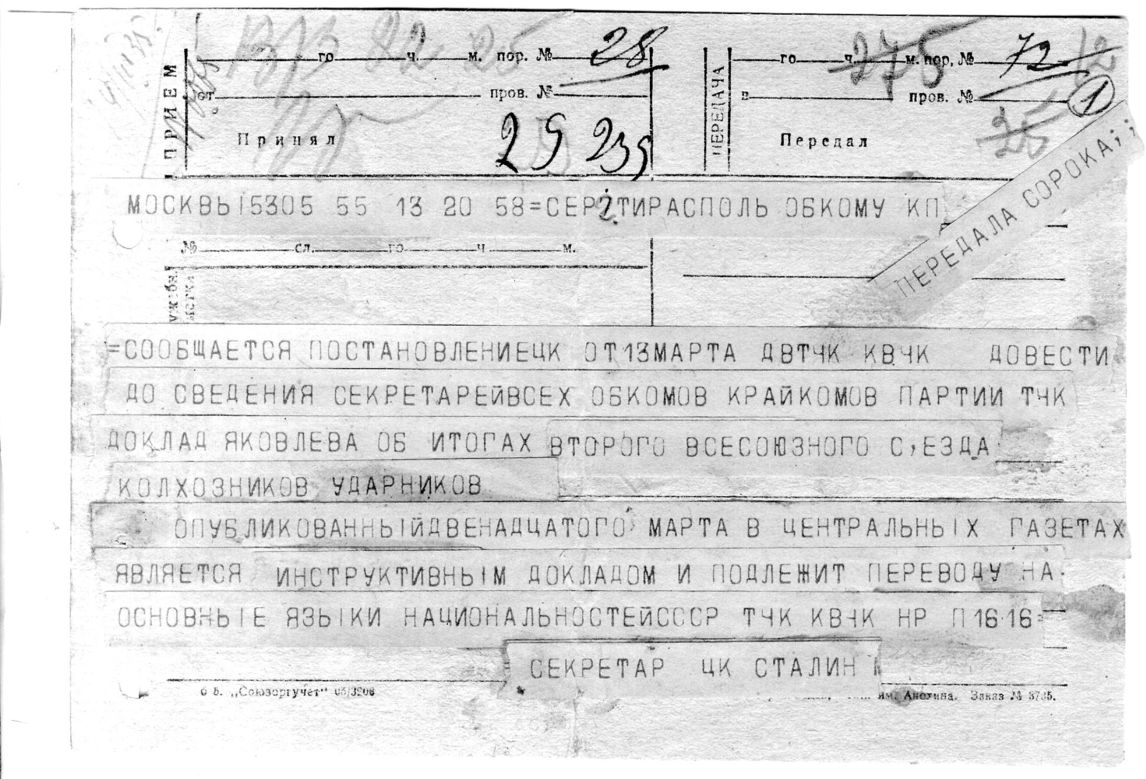 го ч. м. пор. № 28
го ч. м. пор. № 72
275
12
от пров. №
в пров. № 1
35
ПРИЕМ
ПЕРЕДАЧА
Принял 29 239
Передал
ПЕРЕДАЛА СОРОКА;;
МОСКВЫ 15305 55 13 20 58=СЕР2ТИРАСПОЛЬ ОБКОМУ КП
№ сл. го ч. м.
=СООБЩАЕТСЯ ПОСТАНОВЛЕНИЕЦК ОТ13МАРТА ДВТЧК КВЧК ДОВЕСТИ
ДО СВЕДЕНИЯ СЕКРЕТАРЕЙВСЕХ ОБКОМОВ КРАЙКОМОВ ПАРТИИ ТЧК
ДОКЛАД ЯКОВЛЕВА ОБ ИТОГАХ ВТОРОГО ВСЕСОЮЗНОГО С,ЕЗДА
КОЛХОЗНИКОВ УДАРНИКОВ
ОПУБЛИКОВАННЫЙДВЕНАДЦАТОГО МАРТА В ЦЕНТРАЛЬНЫХ ГАЗЕТАХ
ЯВЛЯЕТСЯ ИНСТРУКТИВНЫМ ДОКЛАДОМ И ПОДЛЕЖИТ ПЕРЕВОДУ НА
ОСНОВНЫЕ ЯЗЫКИ НАЦИОНАЛЬНОСТЕЙСССР ТЧК КВЧК НР П16 16=
СЕКРЕТАР ЦК СТАЛИН
ф б. „Союзоргучет" 03/3206
им. Анохина. Заказ № 3735.